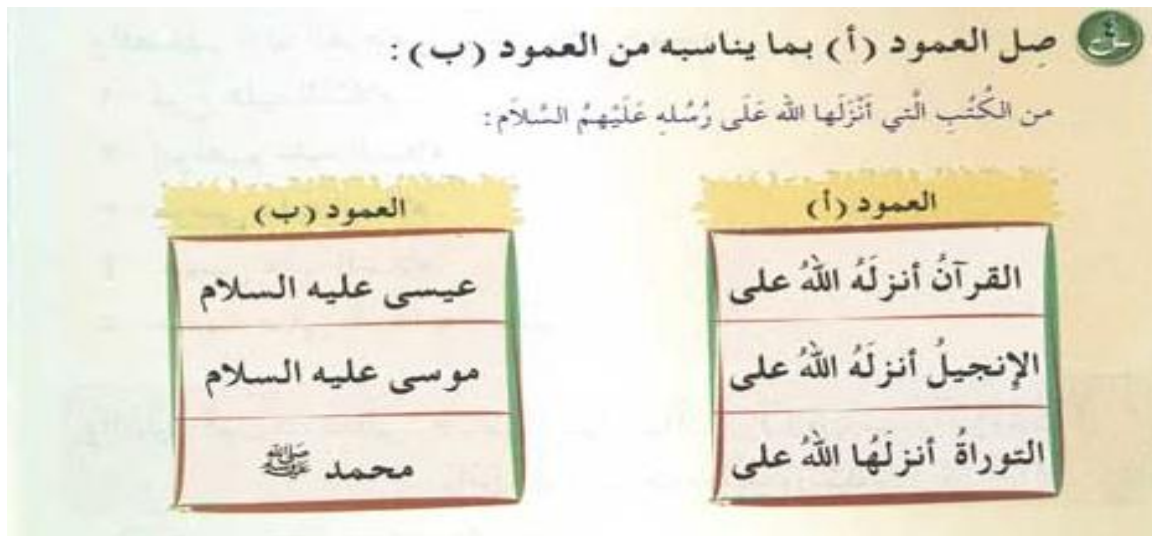 س٤
صِل العمود (أ) بما يناسبه من العمود (ب):
من الكُتُبِ الَّتي أَنْزَلَها الله عَلَى رُسُلهِ عَلَيْهِمُ السَّلَام:
العمود (أ)
القرآنُ أنزلَهُ اللهُ على
الإنجيلُ أنزلَهُ اللهُ على
التوراةُ أنزلَهُا اللهُ على
العمود (ب)
عيسى عليه السلام
موسى عليه السلام
محمد ﷺ